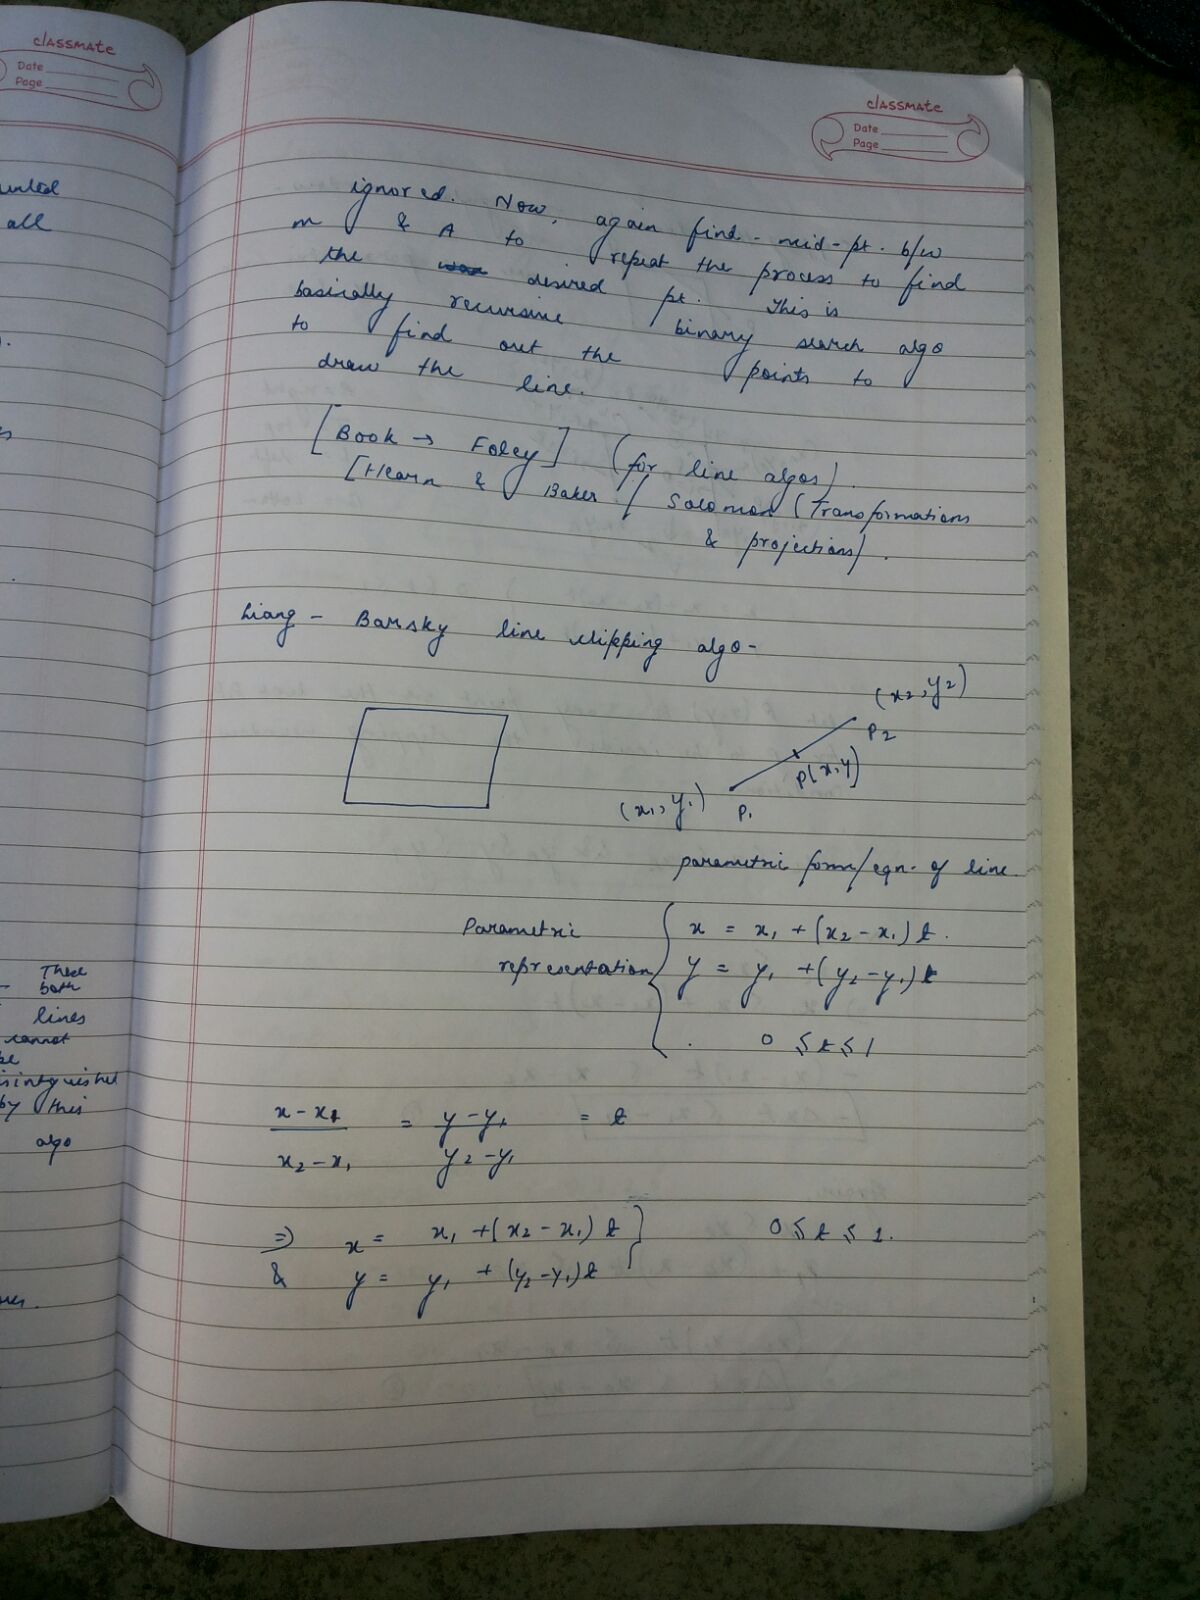 classmate
Date
Page
all
These
both
lines
cannot
by this
algo
classmate
Date
Page
ignored. Now, again find - mid-pt. b/w
m & A to repeat the process to find
the desired pt. This is
basically recursive binary search algo
to find out the points to
draw the line.
[Book → Foley] (for line algos).
[Hearn & Baker / Solomon (Transformations
& projections).
Liang - Barsky line clipping algo-
(x2, y2)
P2
P(x,y)
(x1, y1) P1
parametric form/eqn. of line.
Parametric representation
x = x1 + (x2 - x1) t.
y = y1 + (y2 - y1) t
0 ≤ t ≤ 1
x - x1 / x2 - x1 = y - y1 / y2 - y1 = t
⇒ x = x1 + (x2 - x1) t } 0 ≤ t ≤ 1.
& y = y1 + (y2 - y1) t